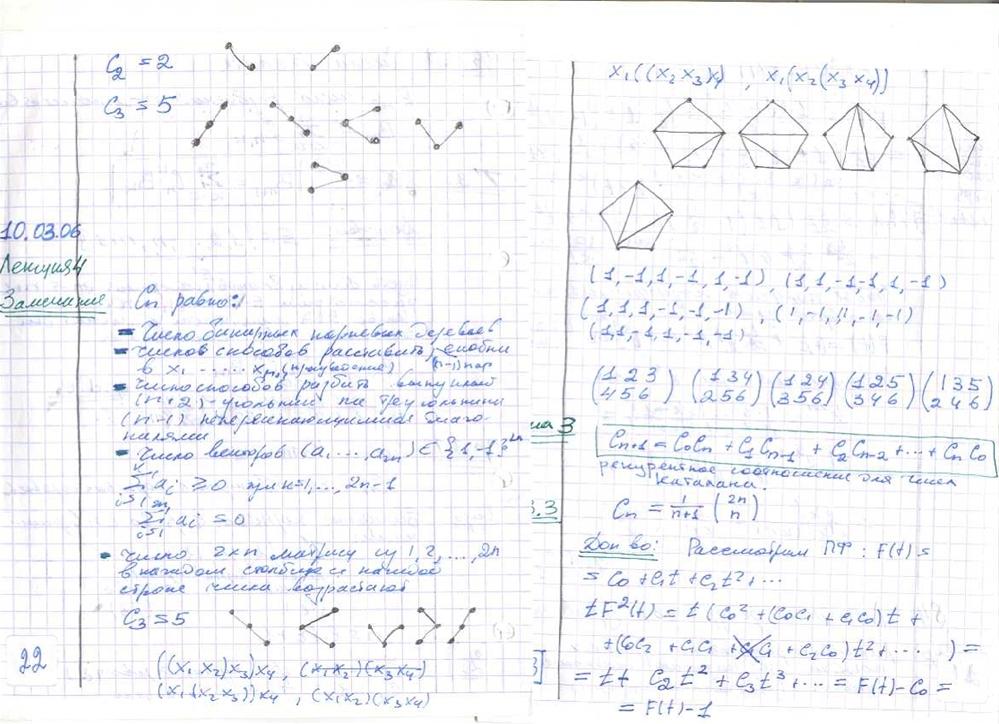 C₂ = 2
C₃ = 5
10.03.06
Лекция 4
Замечание
Cₙ равно:
- число бинарных корневых деревьев
- число способов расставить скобки
в x₁ ..... xₙ₊₁ (произведение) (n-1) пар
- число способов разбить выпуклый
(n+2)-угольник на треугольники
(n-1) непересекающимися диаго-
налями
- число векторов (a₁ ..., a₂ₙ) ∈ {1,-1}²ⁿ
∑ᵢ₌₁ᵏ aᵢ ≥ 0 при k=1,..., 2n-1
∑ᵢ₌₁²ⁿ aᵢ = 0
- число 2×n матриц из 1,2,...,2n
в каждом столбце и каждой
строке числа возрастают
C₃ = 5
((x₁ x₂)x₃)x₄ , (x₁x₂)(x₃x₄)
(x₁(x₂x₃))x₄ , (x₁x₂)(x₃x₄)
22
x₁((x₂x₃)x₄) , x₁(x₂(x₃x₄))
(1,-1,1,-1,1,-1) , (1,1,-1,-1,1,-1)
(1,1,1,-1,-1,-1) , (1,-1,1,1,-1,-1)
(1,1,-1,1,-1,-1)
(1 2 3) (1 3 4) (1 2 4) (1 2 5) (1 3 5)
(4 5 6) (2 5 6) (3 5 6) (3 4 6) (2 4 6)
ма 3
Cₙ₊₁ = C₀Cₙ + C₁Cₙ₋₁ + C₂Cₙ₋₂ + ... + CₙC₀
рекурентное соотношение для чисел
каталана.
3.3
Cₙ = 1/(n+1) (2n n)
Док-во: Рассмотрим ПФ: F(t) =
= C₀ + C₁t + C₂t² + ...
tF²(t) = t(C₀² + (C₀C₁ + C₁C₀)t +
+ (C₀C₂ + C₁C₁ + C₂C₀)t² + ... ) =
= t + C₂t² + C₃t³ + ... = F(t) - C₀ =
= F(t) - 1